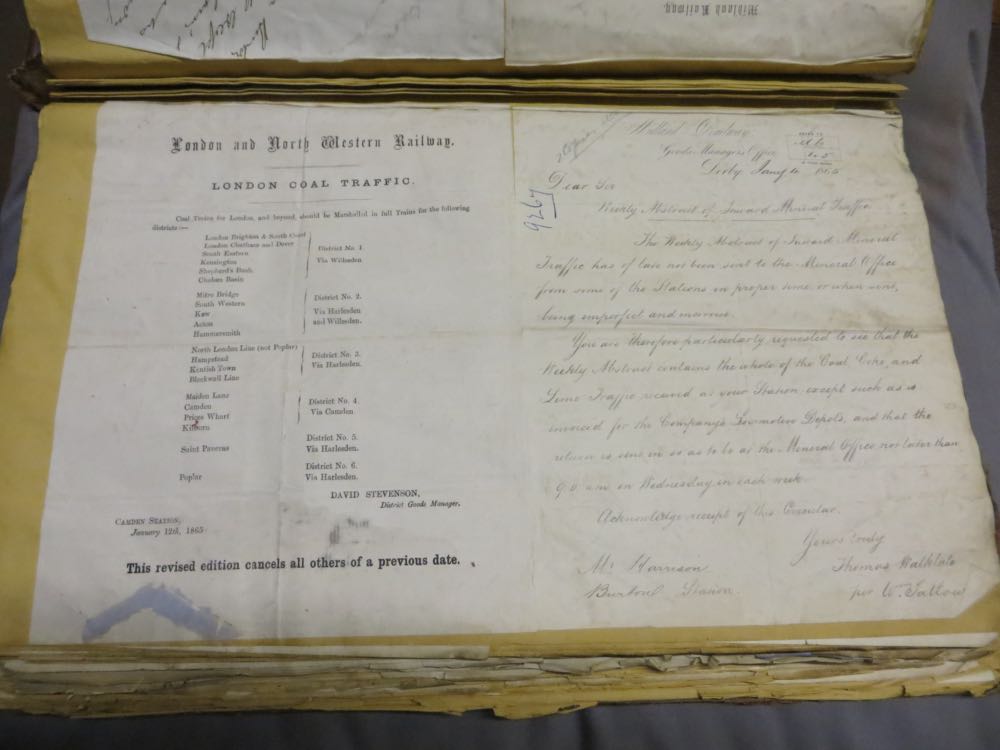 Midland Railway,
London and North Western Railway.
LONDON COAL TRAFFIC.
Coal Trains for London, and beyond, should be Marshalled in full Trains for the following
districts :—
London Brighton & South Coast
London Chatham and Dover
South Eastern
Kensington
Shepherd's Bush
Chelsea Basin
District No. 1
Via Willesden
Mitre Bridge
South Western
Kew
Acton
Hammersmith
District No. 2.
Via Harlesden
and Willesden.
North London Line (not Poplar)
Hampstead
Kentish Town
Blackwall Line
District No. 3.
Via Harlesden.
Maiden Lane
Camden
Prices Wharf
Kilburn
District No. 4.
Via Camden
Saint Pancras
District No. 5.
Via Harlesden.
Poplar
District No. 6.
Via Harlesden.
DAVID STEVENSON,
District Goods Manager.
CAMDEN STATION,
January 12th, 1865
This revised edition cancels all others of a previous date.
Midland Railway
Goods Managers Office
Derby Jany 1865
9267
Dear Sir
Weekly Abstract of Inward Mineral Traffic
The Weekly Abstract of Inward Mineral
Traffic has of late not been sent to the Mineral Office
from some of the Stations in proper time or when sent,
being imperfect and incorrect.
You are therefore particularly requested to see that the
Weekly Abstract contains the whole of the Coal Coke, and
Lime Traffic received at your Station except such as is
invoiced for the Company's Locomotive Depôts, and that the
return is sent in so as to be at the Mineral Office not later than
9.0 am on Wednesday in each week.
Acknowledge receipt of this Circular.
Yours truly
Thomas Walklate
per W. Tatlow
Mr Harrison
Station.